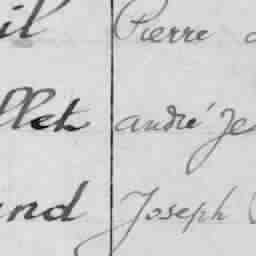 il Pierre
llet andré Je
and Joseph